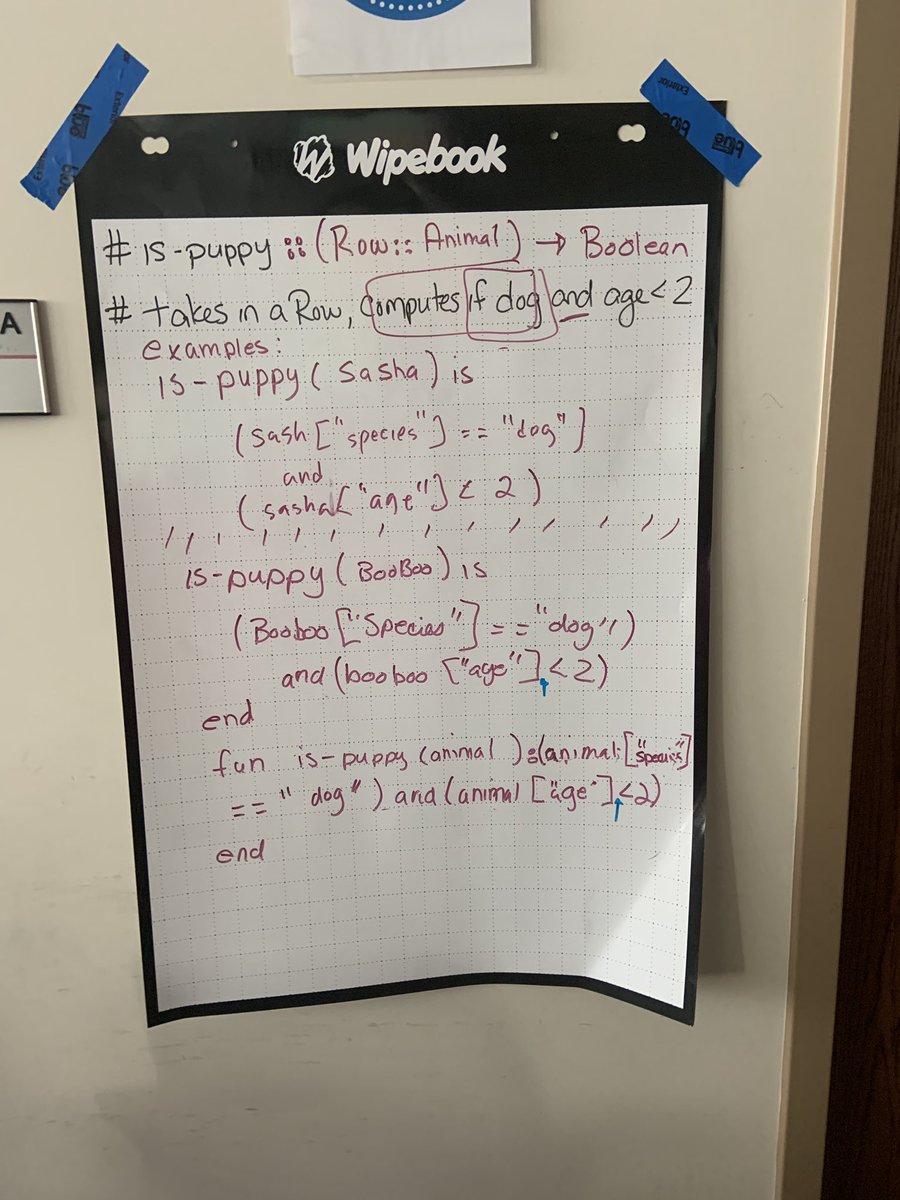 Wipebook
# is-puppy :: (Row:: Animal) → Boolean
# takes in a Row, computes if dog and age < 2
examples:
is-puppy (Sasha) is
(sash["species"] == "dog"]
and
(sasha["age"] < 2)
is-puppy (BooBoo) is
(Booboo ["Species"] == "dog")
and (booboo ["age"] < 2)
end
fun is-puppy (animal) : (animal ["species"]
== "dog") and (animal ["age"] < 2)
end
A
Exterior
blue
blue
Exterior
blue
blue
blue